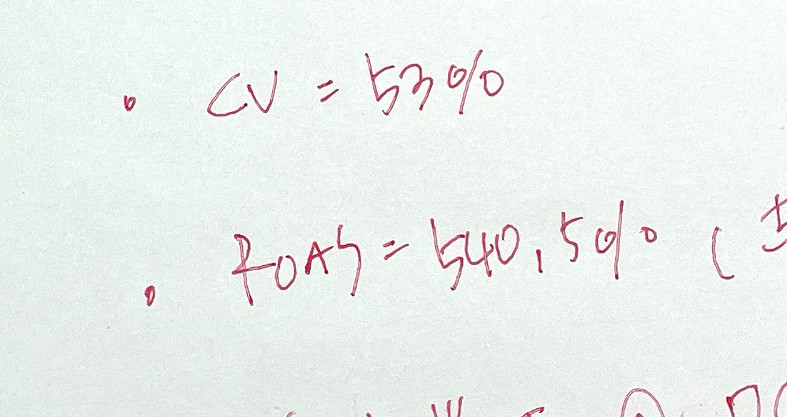 • CV = 53%
• ROAS = 540,5% (